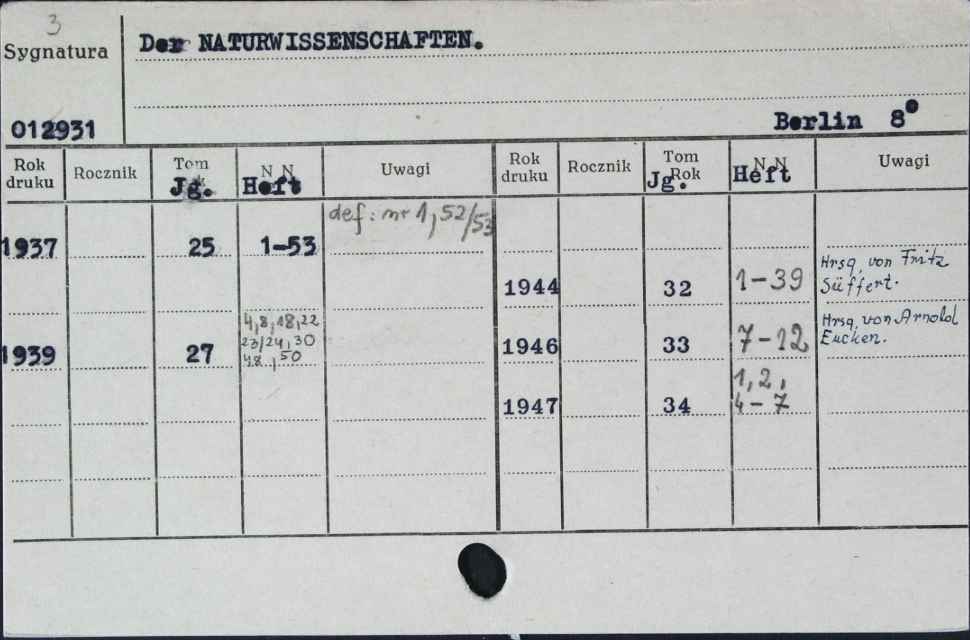 3
Sygnatura
Der NATURWISSENSCHAFTEN.
012931
Berlin 8°
Rok druku Rocznik Tom Jg. N N Heft Uwagi Rok druku Rocznik Tom Rok Jg. N N Heft Uwagi
def: nr 1, 52/53
1937 25 1-53
1944 32 1-39 Hrsg. von Fritz
Süffert.
4, 8, 18, 22
1939 27 23/24, 30
48, 50
1946 33 7-12 Hrsg. von Arnold
Eucken.
1947 34 1, 2,
4-7